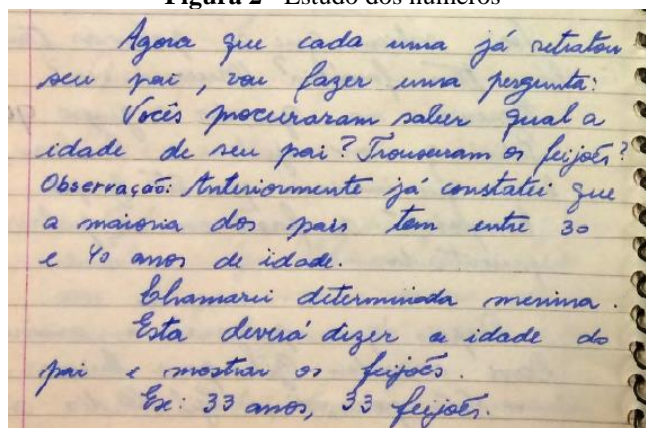 Figura 2 - Estudo dos números
Agora que cada uma já retratou
seu pai, vou fazer uma pergunta:
Vocês procuraram saber qual a
idade de seu pai? Trouxeram os feijões?
Observação: Anteriormente já constatei que
a maioria dos pais tem entre 30
e 40 anos de idade.
Chamarei determinada menina.
Esta deverá dizer a idade do
pai e mostrar os feijões.
Ex: 33 anos, 33 feijões.